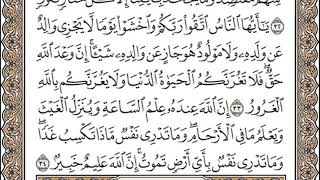 ٣٢ يَٰٓأَيُّهَا ٱلنَّاسُ ٱتَّقُوا۟ رَبَّكُمْ وَٱخْشَوْا۟ يَوْمًا لَّا يَجْزِى وَالِدٌ
عَن وَلَدِهِۦ وَلَا مَوْلُودٌ هُوَ جَازٍ عَن وَالِدِهِۦ شَيْـًٔا ۚ إِنَّ وَعْدَ ٱللَّهِ
حَقٌّ ۖ فَلَا تَغُرَّنَّكُمُ ٱلْحَيَوٰةُ ٱلدُّنْيَا وَلَا يَغُرَّنَّكُم بِٱللَّهِ
ٱلْغَرُورُ ٣٣ إِنَّ ٱللَّهَ عِندَهُۥ عِلْمُ ٱلسَّاعَةِ وَيُنَزِّلُ ٱلْغَيْثَ
وَيَعْلَمُ مَا فِى ٱلْأَرْحَامِ ۖ وَمَا تَدْرِى نَفْسٌ مَّاذَا تَكْسِبُ غَدًا ۖ
وَمَا تَدْرِى نَفْسٌۢ بِأَىِّ أَرْضٍ تَمُوتُ ۚ إِنَّ ٱللَّهَ عَلِيمٌ خَبِيرٌۢ ٣٤